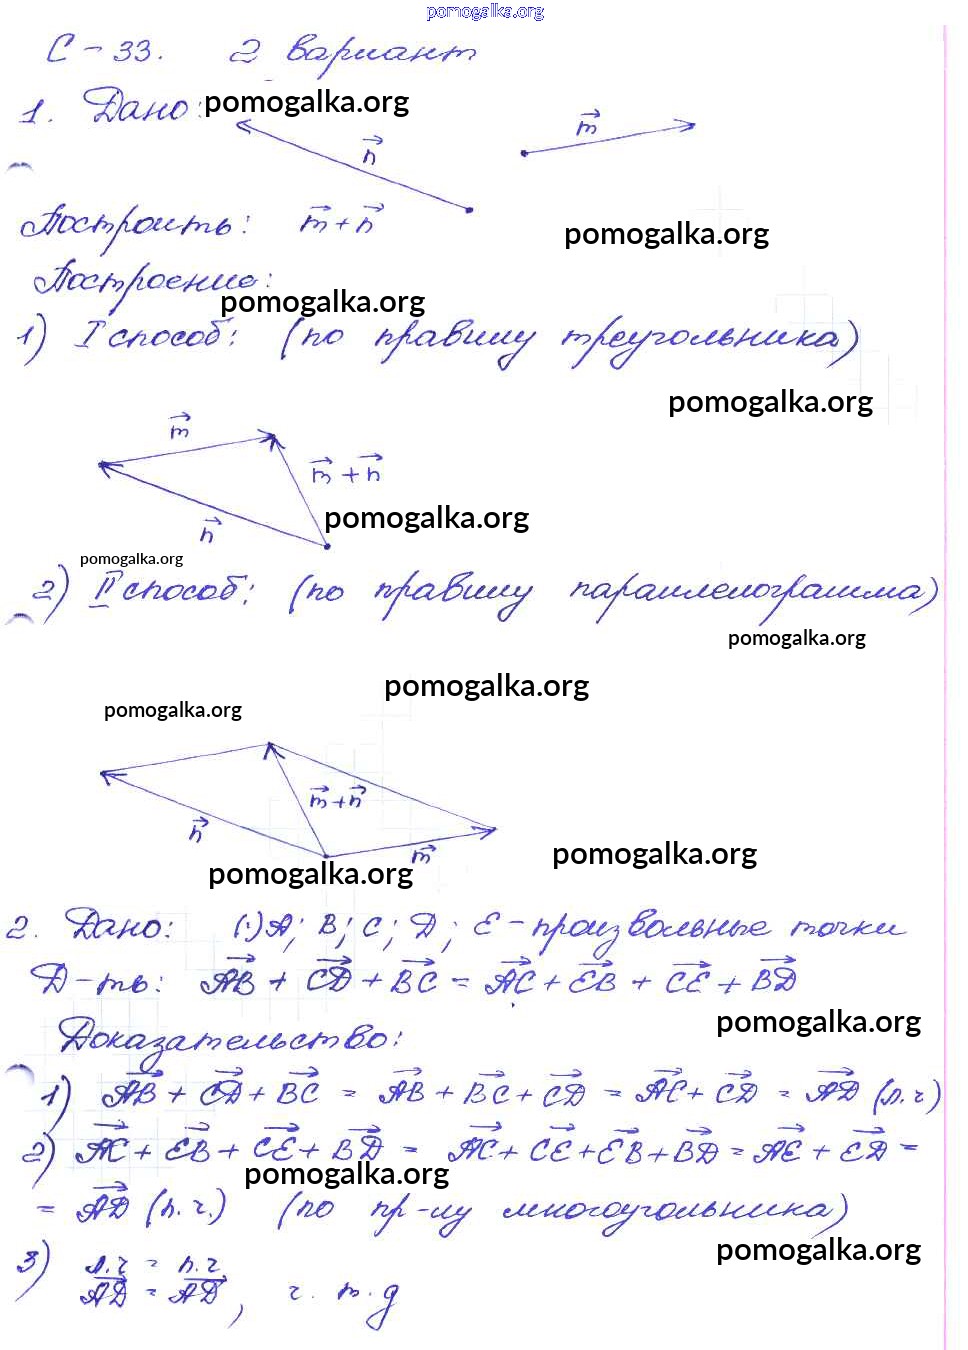 pomogalka.org
С-33. 2 вариант
1. Дано: pomogalka.org
n m
Построить: m + n
pomogalka.org
Построение:
pomogalka.org
1) I способ: (по правилу треугольника)
pomogalka.org
m
m + n
n
pomogalka.org
pomogalka.org
2) II способ: (по правилу параллелограмма)
pomogalka.org
pomogalka.org
pomogalka.org
m+n
n
m
pomogalka.org
pomogalka.org
2. Дано: (·)A; B; C; D; E - произвольные точки
Д-ть: AB + CD + BC = AC + EB + CE + BD
pomogalka.org
Доказательство:
1) AB + CD + BC = AB + BC + CD = AC + CD = AD (л.ч)
2) AC + EB + CE + BD = AC + CE + EB + BD = AE + ED =
pomogalka.org
= AD (п.ч.) (по пр-лу многоугольника)
pomogalka.org
3) л.ч = п.ч
AD = AD, ч. т. д